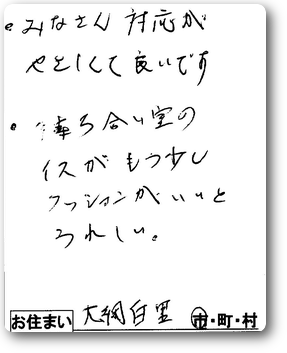 ・みなさん対応が
やさしくて良いです
・待ち合い室の
イスがもう少し
クッションがいいと
うれしい。
お住まい 大網白里 市・町・村